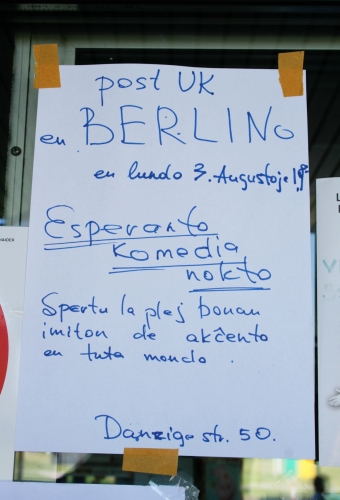 post UK
en BERLINO
en lundo 3. Augusto je 19
Esperanto
Komedia
nokto
Spertu la plej bonan
imiton de akĉento
en tuta mondo.
Danzige str. 50.